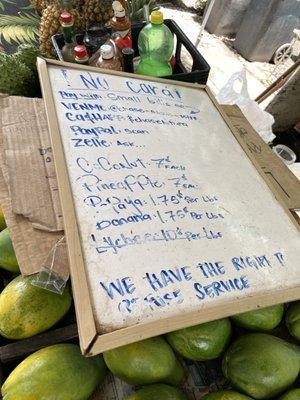 ! No CarD!
Pay With: Small bills
VENMO
CaSHAPP:
Paypal: Scan
Zelle: Ask...
C.CoNut. 7$ Each
Pineapple. 7$ EA.
Papaya. 1.75$ Per Lbs
Banana. 1.75$ Per Lbs
Lychee 10$ Per Lbs
WE HAVE THE RIGHT T
SERVICE